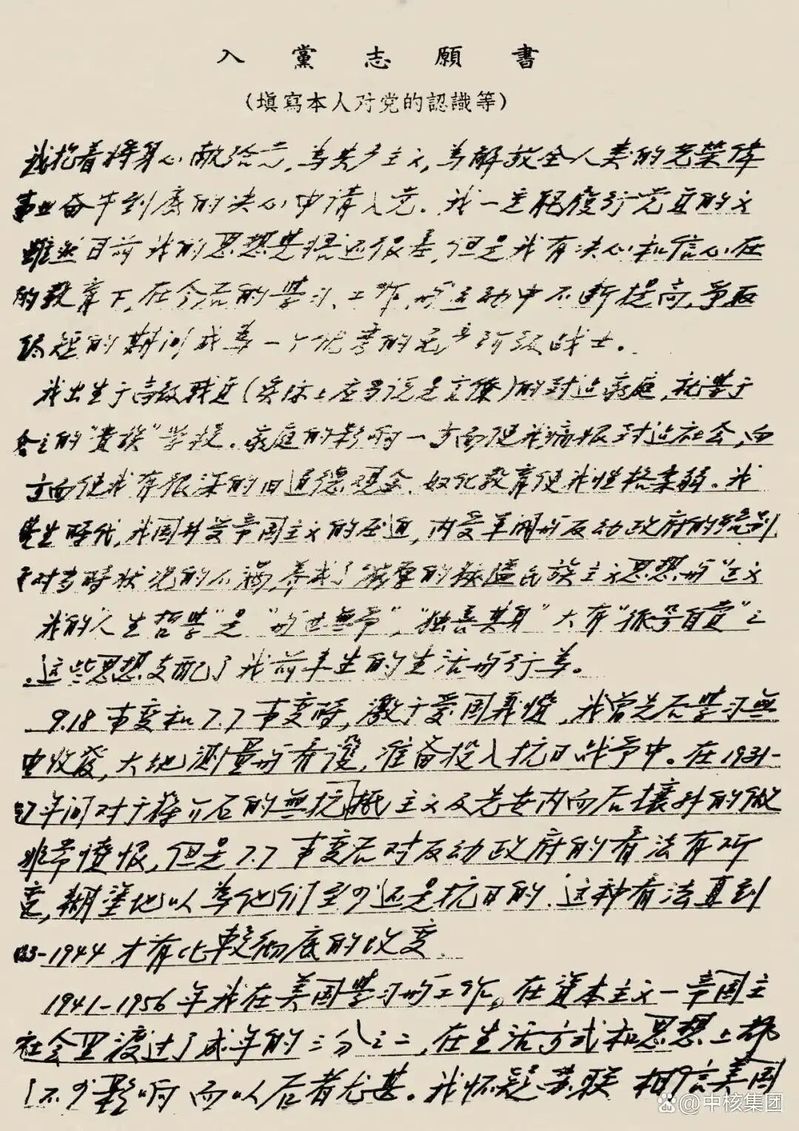 入黨志願書
(填寫本人对党的認識等)
我抱着将身心献给党,為共产主义,為解放全人类的光荣偉
事业奋斗到底的决心申请入党.我一定履行党員的义
雖然目前我的思想覺悟还很差,但是我有决心和信心在
的教育下,在今后的学习、工作、与运动中不断提高,争取
短的期间成為一个优秀的无产阶级战士。
我出生于高級職員(实际上应当说是官僚)的封建家庭,就学于
会立的"貴族"学校.家庭的影响一方面使我痛恨封建社会,而
方面使我有很深的旧道德观念.奴化教育使我性格柔弱。我
学生時代,我国外受帝国主义的压迫,内受军阀与反动政府的
对当時状况的不满,养成了濃厚的狹隘民族主义思想与"正义
我的"人生哲学"是"与世無爭","独善其身"大有"孤芳自賞"之
.这些思想支配了我前半生的生活与行為。
9.18事变和7.7事变時,激于爱国義憤,我曾先后学习無
电收發,大地測量与看護,准备投入抗日战争中。在1931-
年间对于蒋介石的無抵抗主义及先安内而后攘外的做
非常憤恨,但是7.7事变后对反动政府的看法有所
变,糊塗地以為他们至少还是抗日的.这种看法直到
-1944才有比較彻底的改变.
1941-1956年我在美国学习与工作。在资本主义—帝国主
社会里渡过了成年的三分之二,在生活方式和思想上都
了不少影响而以后者尤甚。我怀疑苏联 相信美国
@中核集团